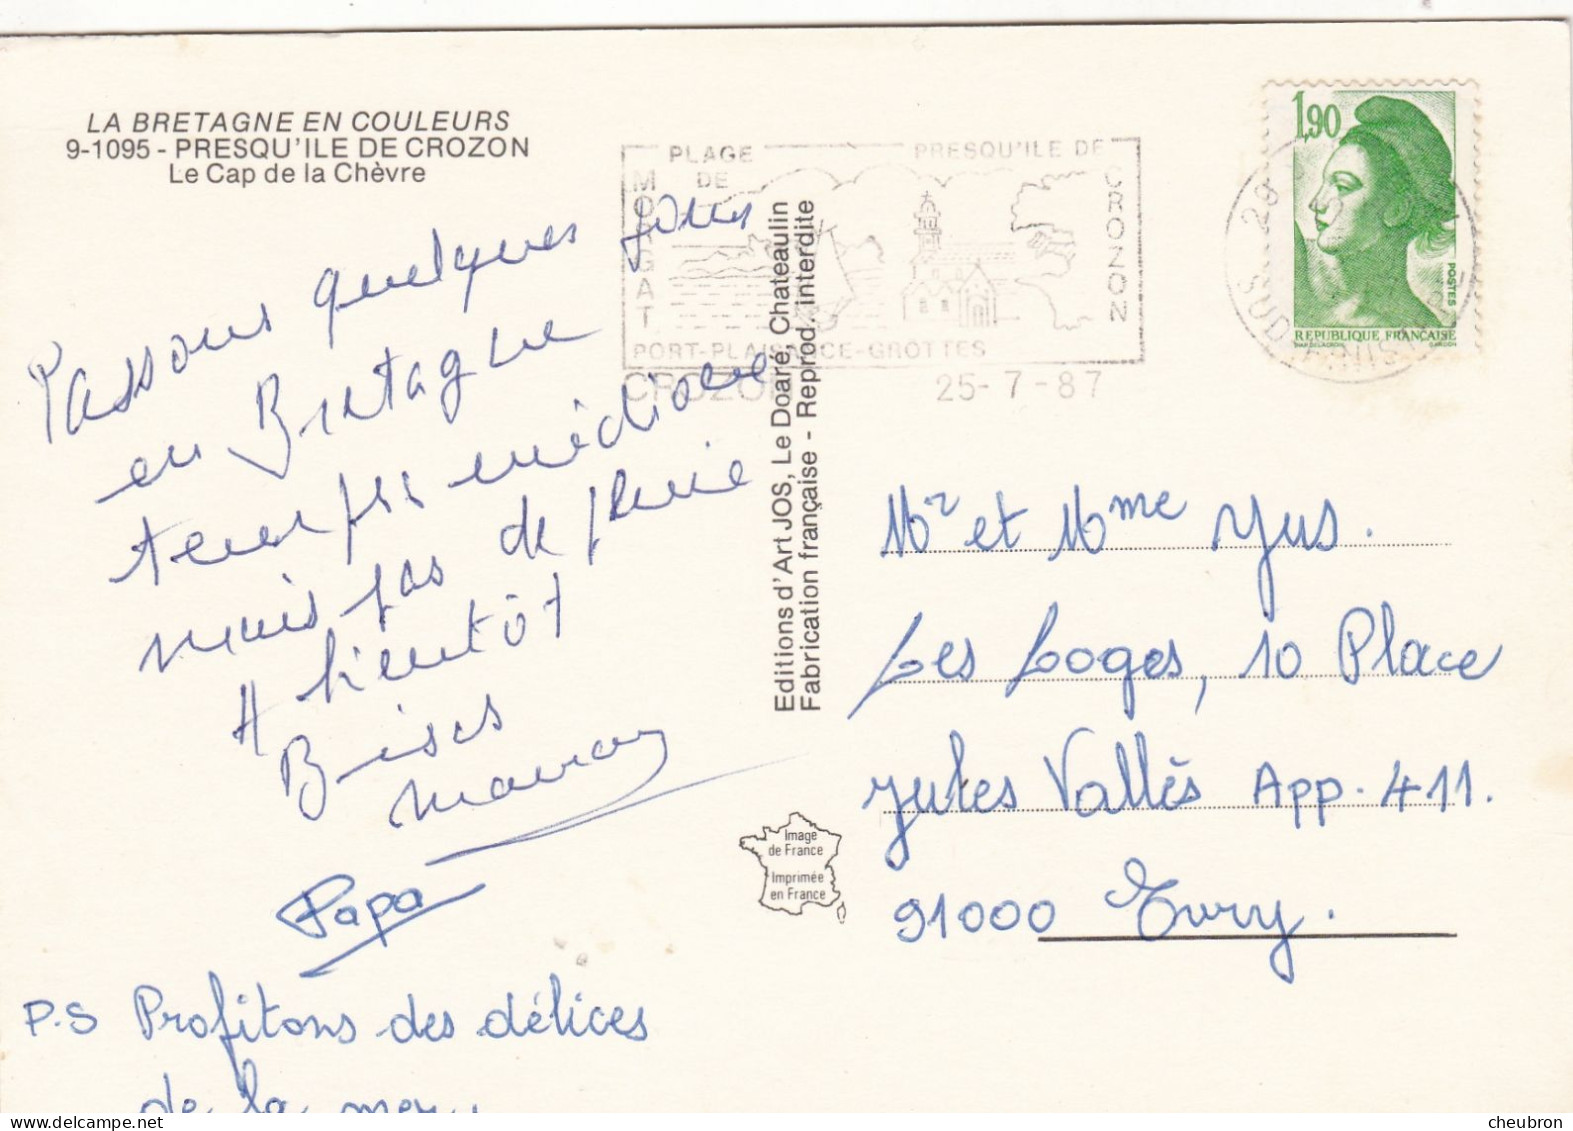 LA BRETAGNE EN COULEURS
9-1095 - PRESQU'ILE DE CROZON
Le Cap de la Chèvre
PLAGE DE MORGAT
PRESQU'ILE DE CROZON
PORT-PLAISANCE-GROTTES
CROZON 25-7-87
1,90
POSTES
REPUBLIQUE FRANÇAISE
Passons quelques jours
en Bretagne
temps médiocre
mais pas de pluie
A bientôt
Bises
Maman
Papa
P.S Profitons des délices
de la mer
Editions d'Art JOS, Le Doaré, Chateaulin
Fabrication française - Reprod. interdite
Image
de France
Imprimée
en France
Mr et Mme Yus.
Les Loges, 10 Place
Jules Vallès App. 411.
91000 Evry.
www.delcampe.net
cheubron